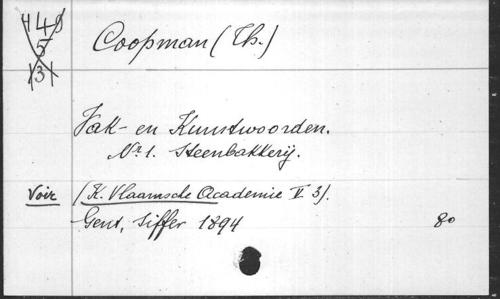 Coopman (Th.)
Vak- en Kunstwoorden.
Nr 1. Steenbakkerij.
Voir (K. Vlaamsche Academie V 3).
Gent, Siffer 1894 8o